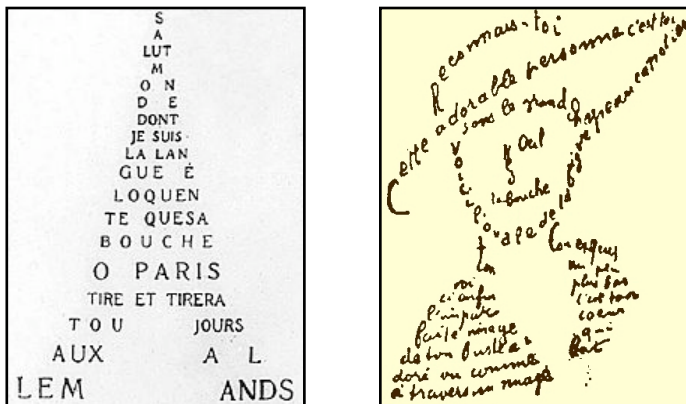 S
A
LUT
M
O N
D E
DONT
JE SUIS
LA LAN
GUE É
LOQUEN
TE QUESA
BOUCHE
O PARIS
TIRE ET TIRERA
TOU JOURS
AUX A L
LEM ANDS
Reconnais-toi
Cette adorable personne c'est toi
sous le grand chapeau canotier
Oeil
Voici l'ovale de ta figure
la bouche
ton
cou exquis
voi
ci enfin
l'imparfaite image
de ton buste a
doré vu comme
à travers un nuage
un peu
plus bas
c'est ton
coeur
qui
bat